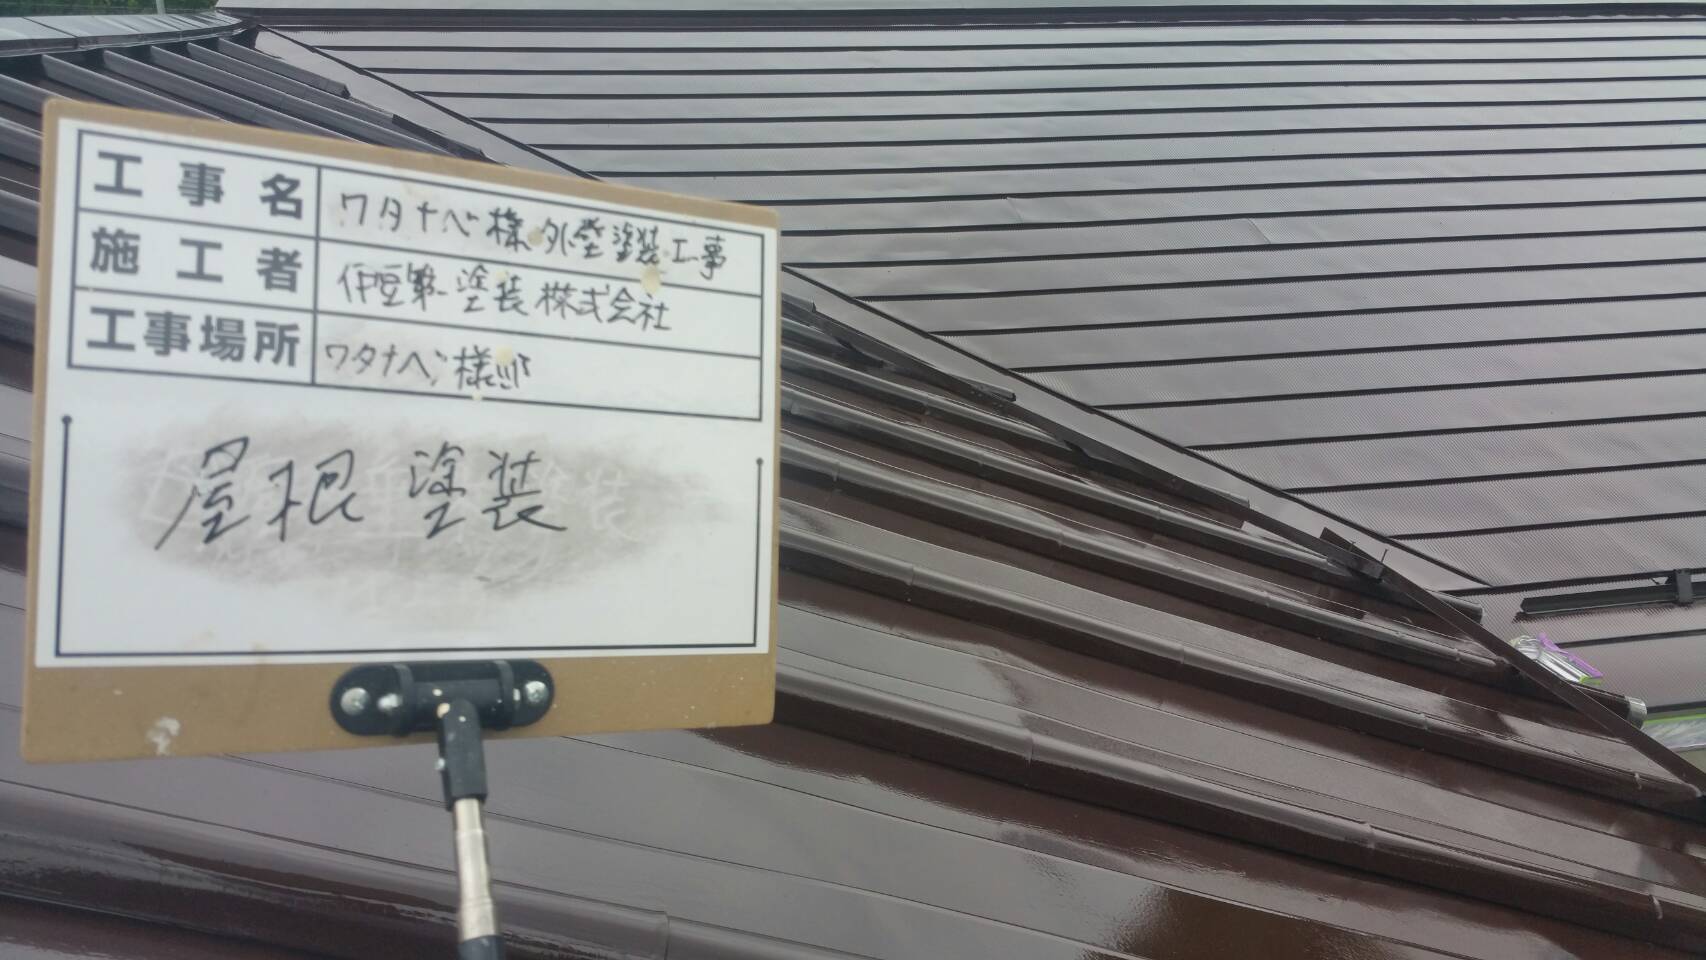 工事名 ワタナベ様外壁塗装工事
施工者 伊豆第一塗装株式会社
工事場所 ワタナベ様邸
屋根塗装